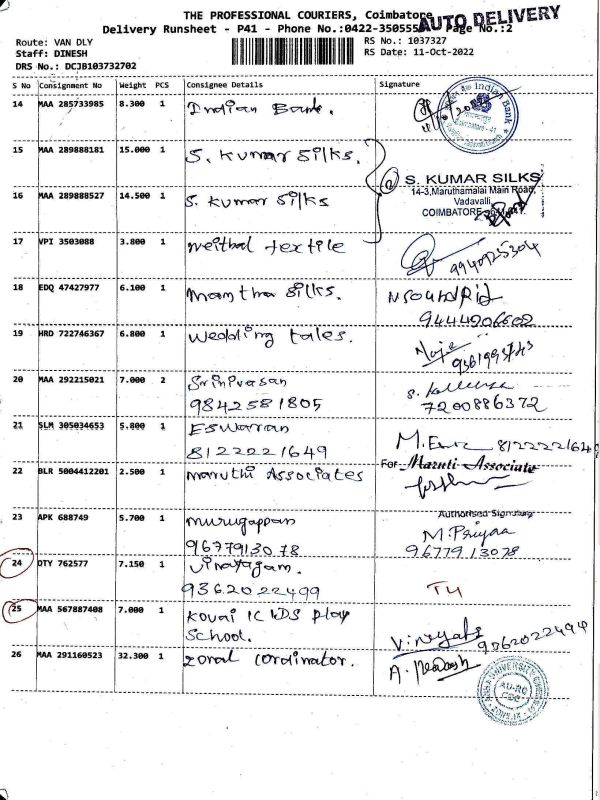 THE PROFESSIONAL COURIERS, Coimbatore
AUTO DELIVERY
Delivery Runsheet - P41 - Phone No.:0422-350555 Page No.:2
Route: VAN DLY
RS No.: 1037327
Staff: DINESH
RS Date: 11-Oct-2022
DRS No.: DCJB103732702
S No Consignment No Weight PCS Consignee Details Signature
14 MAA 285733985 8.300 1 Indian Bank.
Indian Bank
15 MAA 289888181 15.000 1 S. Kumar Silks.
S. KUMAR SILKS
14-3,Maruthamalai Main Road,
Vadavalli,
COIMBATORE
16 MAA 289888527 14.500 1 S. Kumar Silks
17 VPI 3503088 3.800 1 neithal textile
9940925304
18 EDQ 47427977 6.100 1 mamtha silks.
9444906602
19 HRD 722746367 6.800 1 wedding tales.
20 MAA 292215021 7.000 2 Srinivasan
9842581805
7200886372
21 SLM 305034653 5.800 1 ESWaran
8122221649
22 BLR 5004412201 2.500 1 maruthi Associates
For Maruti Associate
Authorised Signatory
23 APK 688749 5.700 1 murugappan
9677913078
M. Priyaa
9677913078
24 OTY 762577 7.150 1 Vinayagam.
9362022499
25 MAA 567887408 7.000 1 Kovai KIDS play
School.
9362022499
26 MAA 291160523 32.300 1 zonal cordinator.